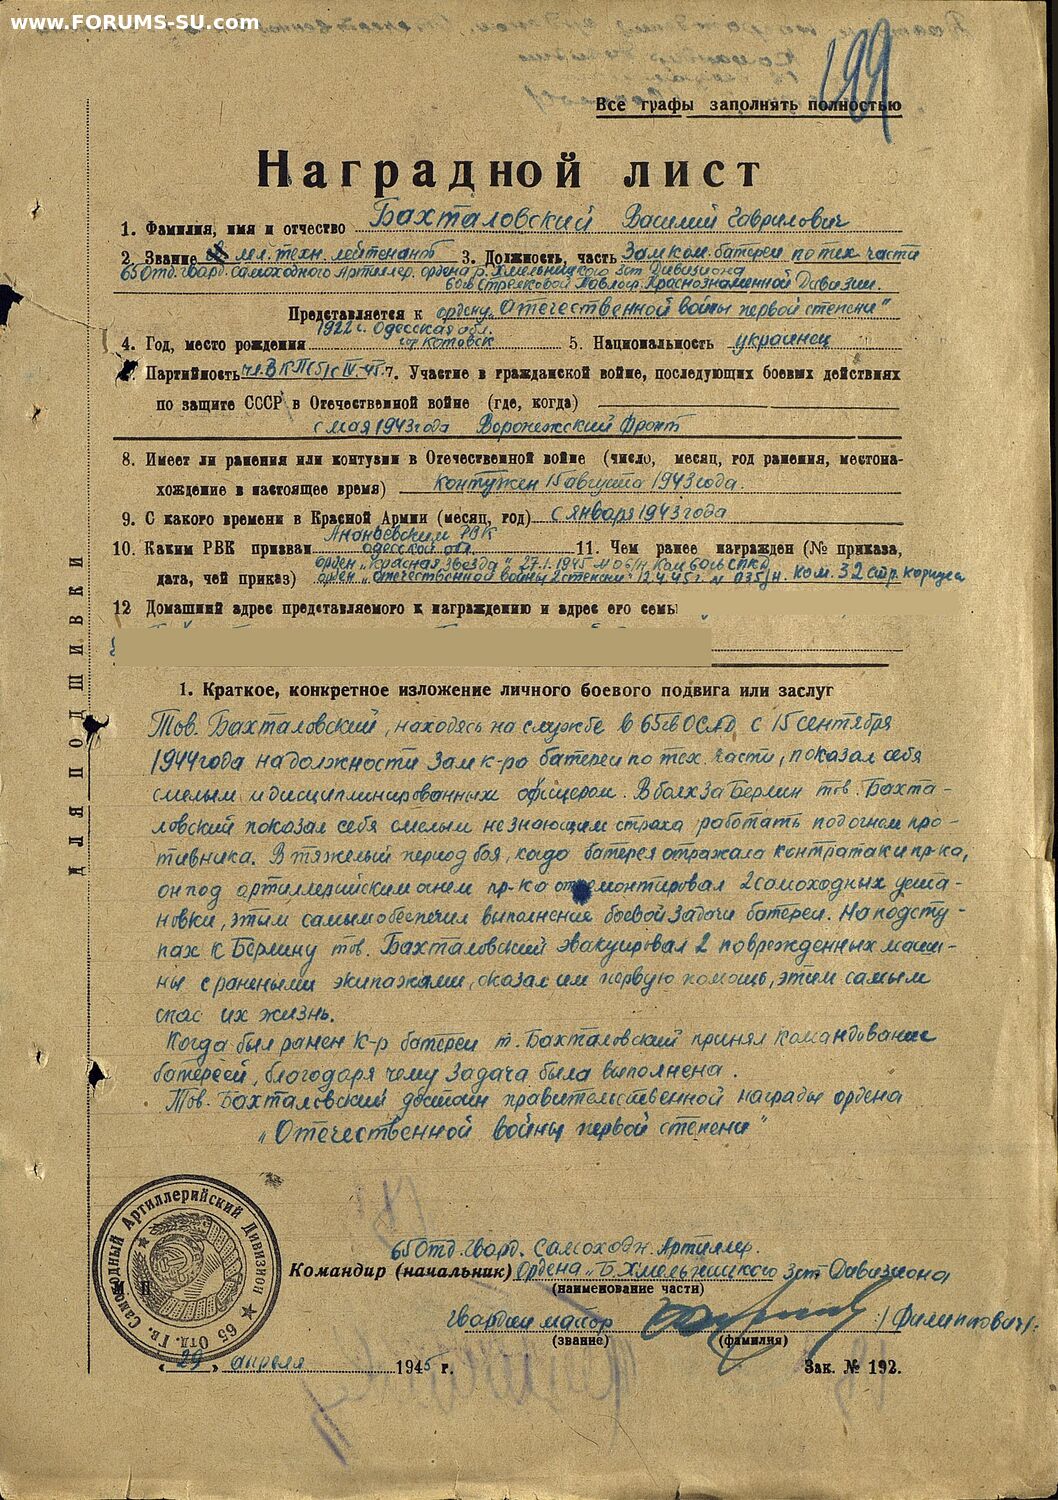 www.FORUMS-SU.com
199
Все графы заполнять полностью
Наградной лист
1. Фамилия, имя и отчество Бахталовский Василий Гаврилович
2 Звание мл. техн. лейтенант 3. Должность, часть Зам ком. батереи по тех части
65 Отд. Гвард. Самоходного Артиллер. ордена Б. Хмельницкого 3ст Дивизиона
Стрелковой Павлогр. Краснознаменной Дивизии.
Представляется к ордену „Отечественной войны первой степени"
1922 г. Одесская обл.
4. Год, место рождения гор Котовск 5. Национальность украинец
Партийность чл. ВКП(б) с IV-45г. 7. Участие в гражданской войне, последующих боевых действиях
по защите СССР в Отечественной войне (где, когда)
с мая 1943 года Воронежский Фронт
8. Имеет ли ранения или контузии в Отечественной войне (число, месяц, год ранения, местона-
хождение в настоящее время) контужен 15 августа 1943 года.
9. С какого времени в Красной Армии (месяц, год) с января 1943 года
Ананьевским РВК
10. Каким РВК призван Одесской обл. 11. Чем ранее награжден (№ приказа,
орден „Красная Звезда" 27.1.1945
дата, чей приказ) орден „Отечественной войны 2 степени" 12.4.45г. № 035/н. Ком. 32 стр. корпуса
12 Домашний адрес представляемого к награждению и адрес его семьи
ДЛЯ ПОДШИВКИ
1. Краткое, конкретное изложение личного боевого подвига или заслуг
Тов. Бахталовский, находясь на службе в 65 гв ОСАД с 15 сентября
1944 года на должности Зам к-ра батереи по тех. части, показал себя
смелым и дисциплинированным офицером. В боях за Берлин тов. Бахта-
ловский показал себя смелым не знающим страха работать под огнем про-
тивника. В тяжелый период боя, когда батерея отражала контратаки пр-ка,
он под артиллерийским огнем пр-ка отремонтировал 2 самоходных уста-
новки, этим самым обеспечил выполнение боевой задачи батереи. На подсту-
пах к Берлину тов. Бахталовский эвакуировал 2 поврежденных маши-
ны с ранеными экипажами, оказал им первую помощь, этим самым
спас их жизнь.
Когда был ранен к-р батереи т. Бахталовский принял командование
батереей, благодаря чему задача была выполнена.
Тов. Бахталовский достоин правительственной награды ордена
„Отечественной войны первой степени"
65 Отд. Гв. Самоходный Артиллерийский Дивизион
М П
65 Отд. Гвард. Самоходн. Артиллер.
Командир (начальник) Ордена „Б. Хмельницкого 3ст Дивизиона
(наименование части)
Гвардии майор /Филиппович/
(звание) (фамилия)
„29" апреля 1945 г. Зак. № 192.